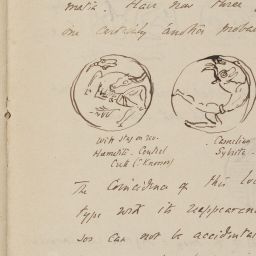 matia. Have now three
one certainly another probab
With stag on rev.
Haematite. Central
Crete (? Knossos)
Carnelian
Sybrita
The Coincidence of this
type with its reappearan
sos can not be accidental